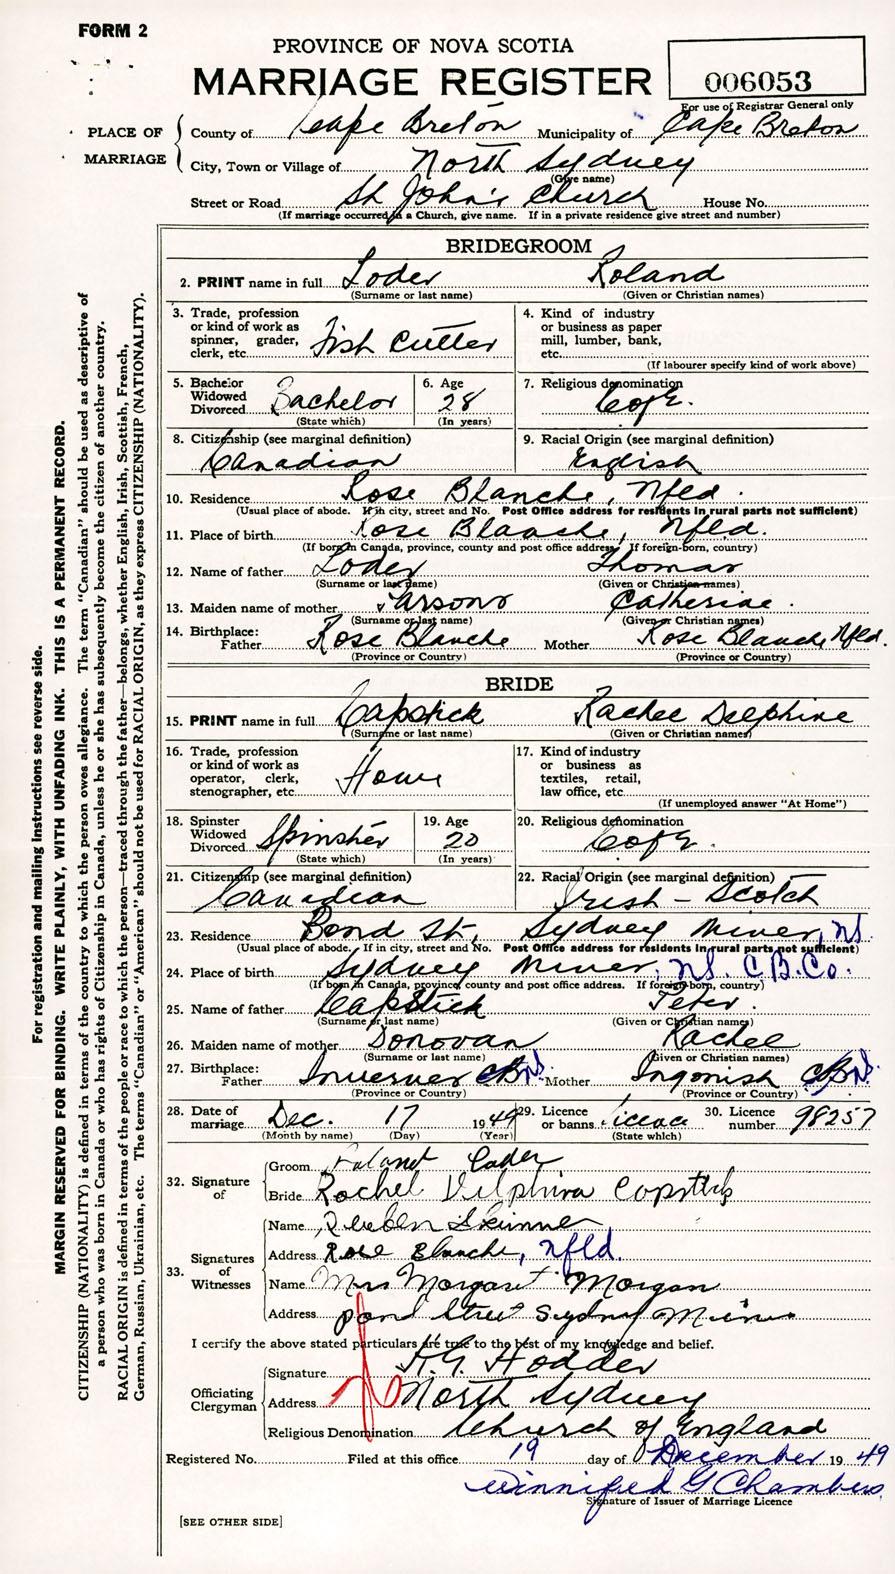 FORM 2
PROVINCE OF NOVA SCOTIA
MARRIAGE REGISTER
006053
For use of Registrar General only
PLACE OF MARRIAGE
County of Cape Breton Municipality of Cape Breton
City, Town or Village of North Sydney
(Give name)
Street or Road St John's Church House No.
(If marriage occurred in a Church, give name. If in a private residence give street and number)
BRIDEGROOM
2. PRINT name in full Loder Roland
(Surname or last name) (Given or Christian names)
3. Trade, profession or kind of work as spinner, grader, clerk, etc. Fish Cutter
4. Kind of industry or business as paper mill, lumber, bank, etc.
(If labourer specify kind of work above)
5. Bachelor Widowed Divorced Bachelor
(State which)
6. Age 28
(In years)
7. Religious denomination C of E.
8. Citizenship (see marginal definition) Canadian
9. Racial Origin (see marginal definition) English
10. Residence Rose Blanche, Nfld.
(Usual place of abode. If in city, street and No. Post Office address for residents in rural parts not sufficient)
11. Place of birth Rose Blanche, Nfld.
(If born in Canada, province, county and post office address, If foreign-born, country)
12. Name of father Loder Thomas
(Surname or last name) (Given or Christian names)
13. Maiden name of mother Parsons Catherine.
(Surname or last name) (Given or Christian names)
14. Birthplace: Father Rose Blanche Mother Rose Blanche Nfld.
(Province or Country) (Province or Country)
BRIDE
15. PRINT name in full Capstick Rachel Delphine
(Surname or last name) (Given or Christian names)
16. Trade, profession or kind of work as operator, clerk, stenographer, etc. Home
17. Kind of industry or business as textiles, retail, law office, etc.
(If unemployed answer "At Home")
18. Spinster Widowed Divorced Spinster
(State which)
19. Age 20
(In years)
20. Religious denomination C of E.
21. Citizenship (see marginal definition) Canadian
22. Racial Origin (see marginal definition) Irish - Scotch
23. Residence Bond St., Sydney Mines, NS.
(Usual place of abode. If in city, street and No. Post Office address for residents in rural parts not sufficient)
24. Place of birth Sydney Mines, NS. C.B.Co.
(If born in Canada, province, county and post office address. If foreign-born, country)
25. Name of father Capstick Peter.
(Surname or last name) (Given or Christian names)
26. Maiden name of mother Donovan Rachel
(Surname or last name) (Given or Christian names)
27. Birthplace: Father Inverness Mother Ingonish
(Province or Country) (Province or Country)
28. Date of marriage Dec. 17 1949
(Month by name) (Day) (Year)
29. Licence or banns Licence
(State which)
30. Licence number 98257
32. Signature of
Groom Roland Loder
Bride Rachel Delphina Capstick
33. Signatures of Witnesses
Name Reuben Skinner
Address Rose Blanche, Nfld.
Name Mrs Margaret Morgan
Address pond Street Sydney Mines
I certify the above stated particulars are true to the best of my knowledge and belief.
Officiating Clergyman
Signature Hodder
Address North Sydney
Religious Denomination Church of England
Registered No. Filed at this office 19 day of December 1949
Winnifred G Chambers
Signature of Issuer of Marriage Licence
[SEE OTHER SIDE]
For registration and mailing instructions see reverse side.
MARGIN RESERVED FOR BINDING. WRITE PLAINLY, WITH UNFADING INK. THIS IS A PERMANENT RECORD.
CITIZENSHIP (NATIONALITY) is defined in terms of the country to which the person owes allegiance. The term "Canadian" should be used as descriptive of
a person who was born in Canada or who has rights of Citizenship in Canada, unless he or she has subsequently become the citizen of another country.
RACIAL ORIGIN is defined in terms of the people or race to which the person—traced through the father—belongs, whether English, Irish, Scottish, French,
German, Russian, Ukrainian, etc. The terms "Canadian" or "American" should not be used for RACIAL ORIGIN, as they express CITIZENSHIP (NATIONALITY).